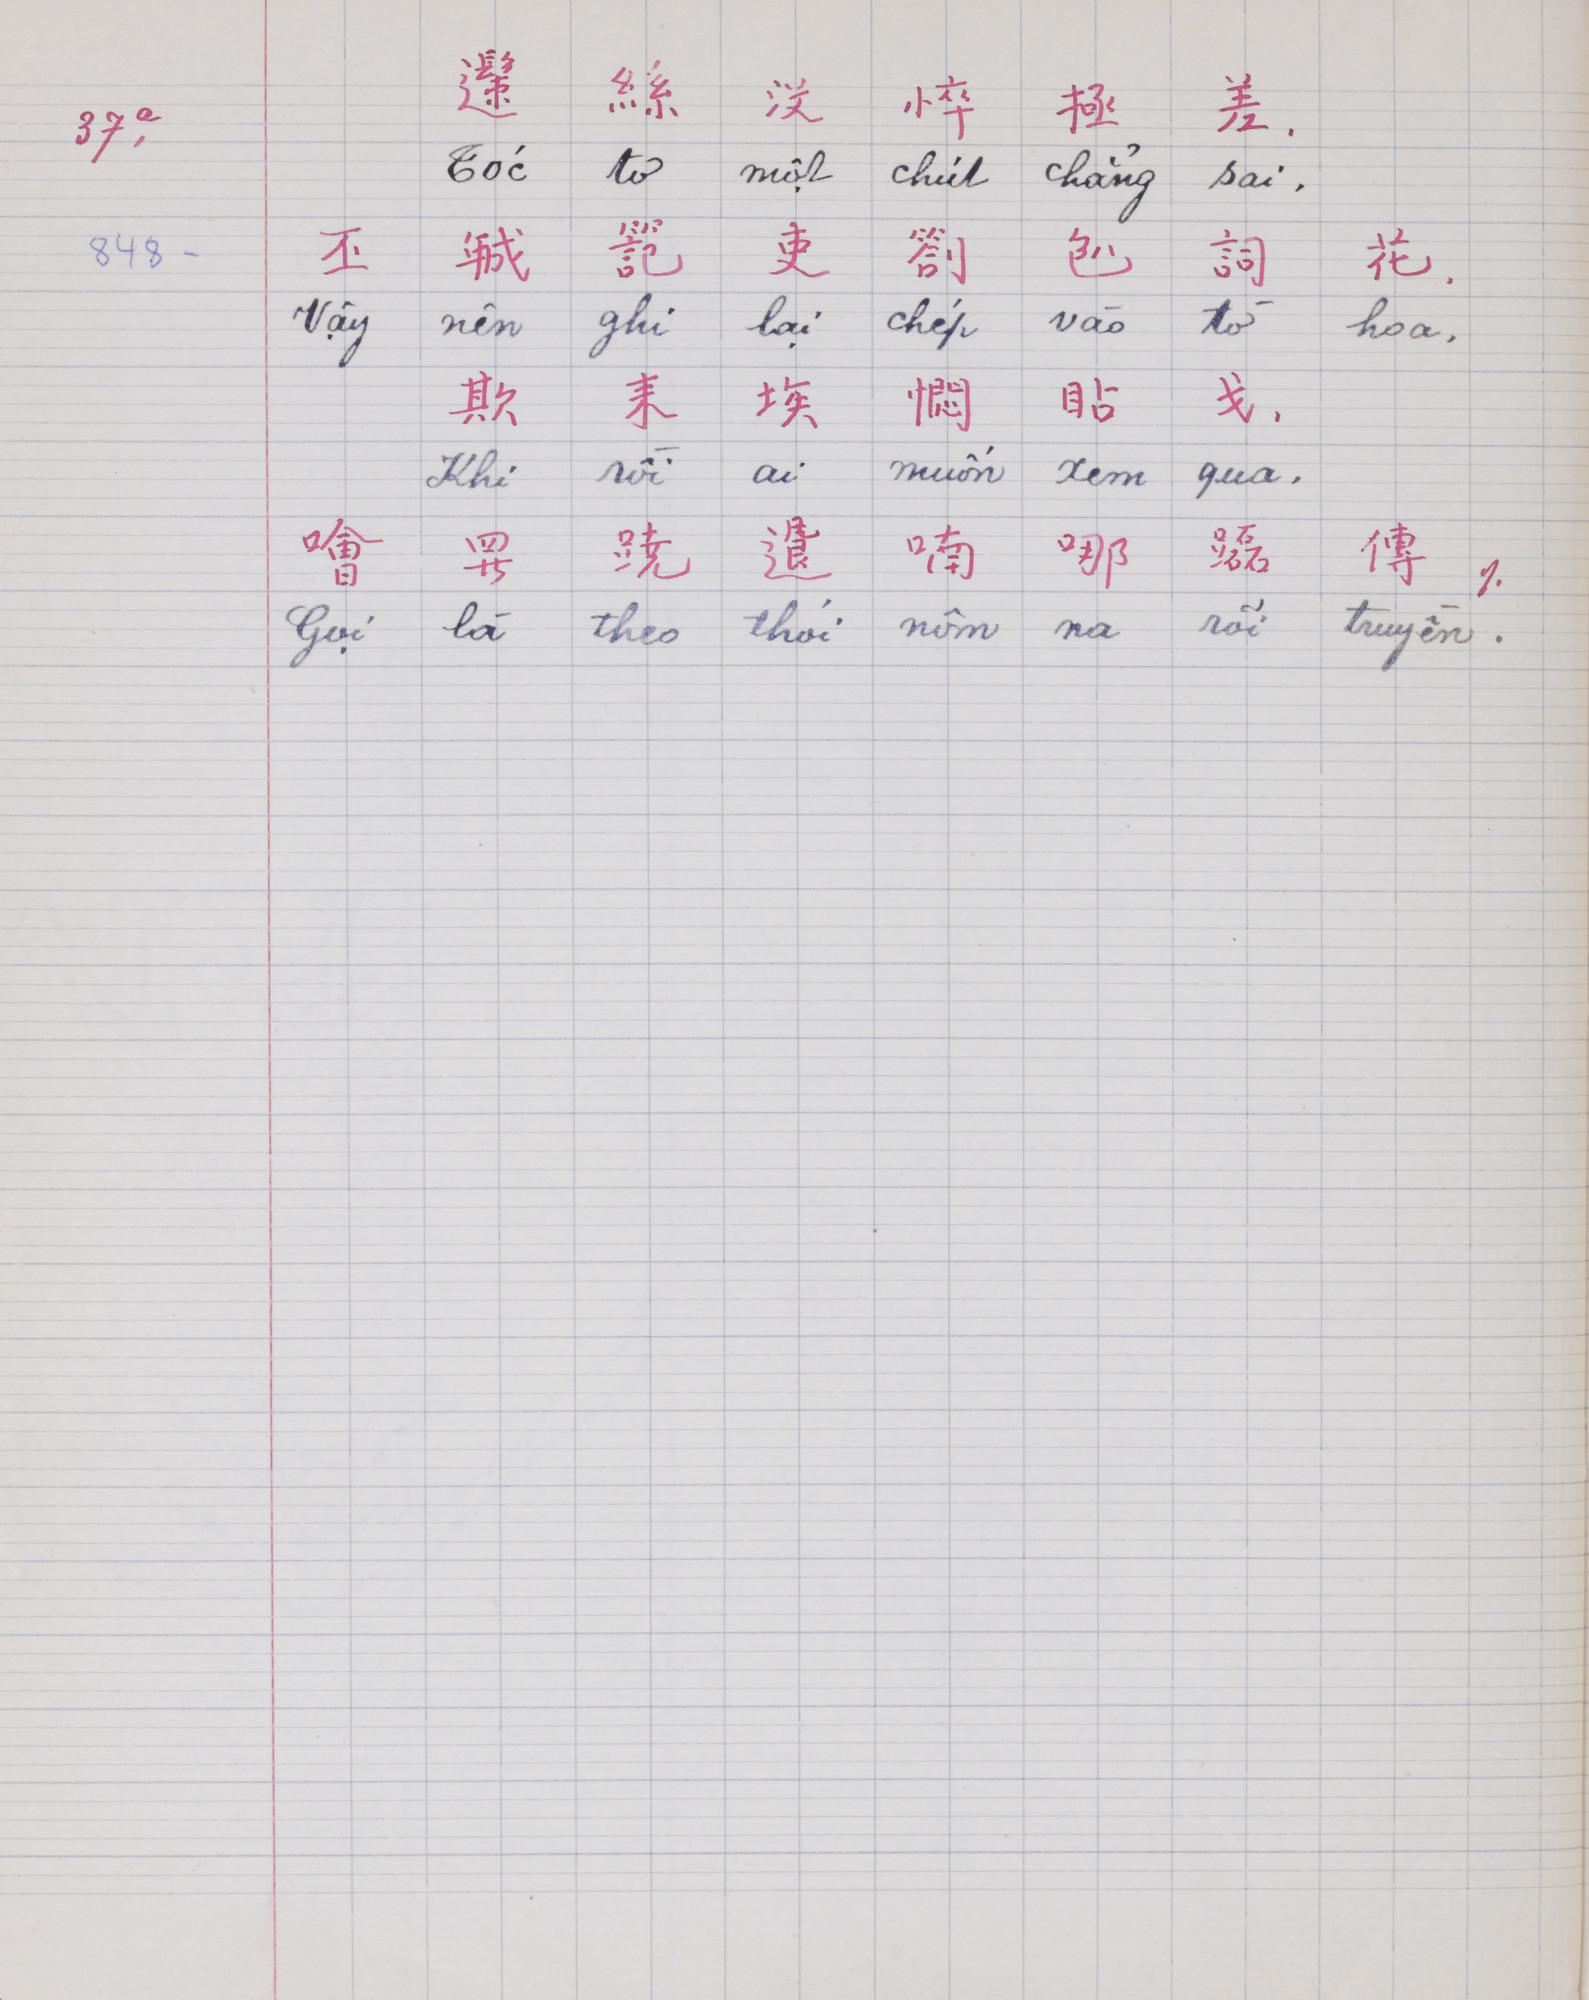 37a.
絲 沒 悴 極 差.
Tóc tơ một chút chẳng sai.
848 - 丕 吏 劄 𠓨 詞 花.
Vậy nên ghi lại chép vào tờ hoa.
欺 耒 埃 憫 䀡 戈.
Khi rồi ai muốn xem qua.
噲 𱺵 蹺 退 喃 哪 磊 傳 ⁒
Gọi là theo thói nôm na rối truyền.